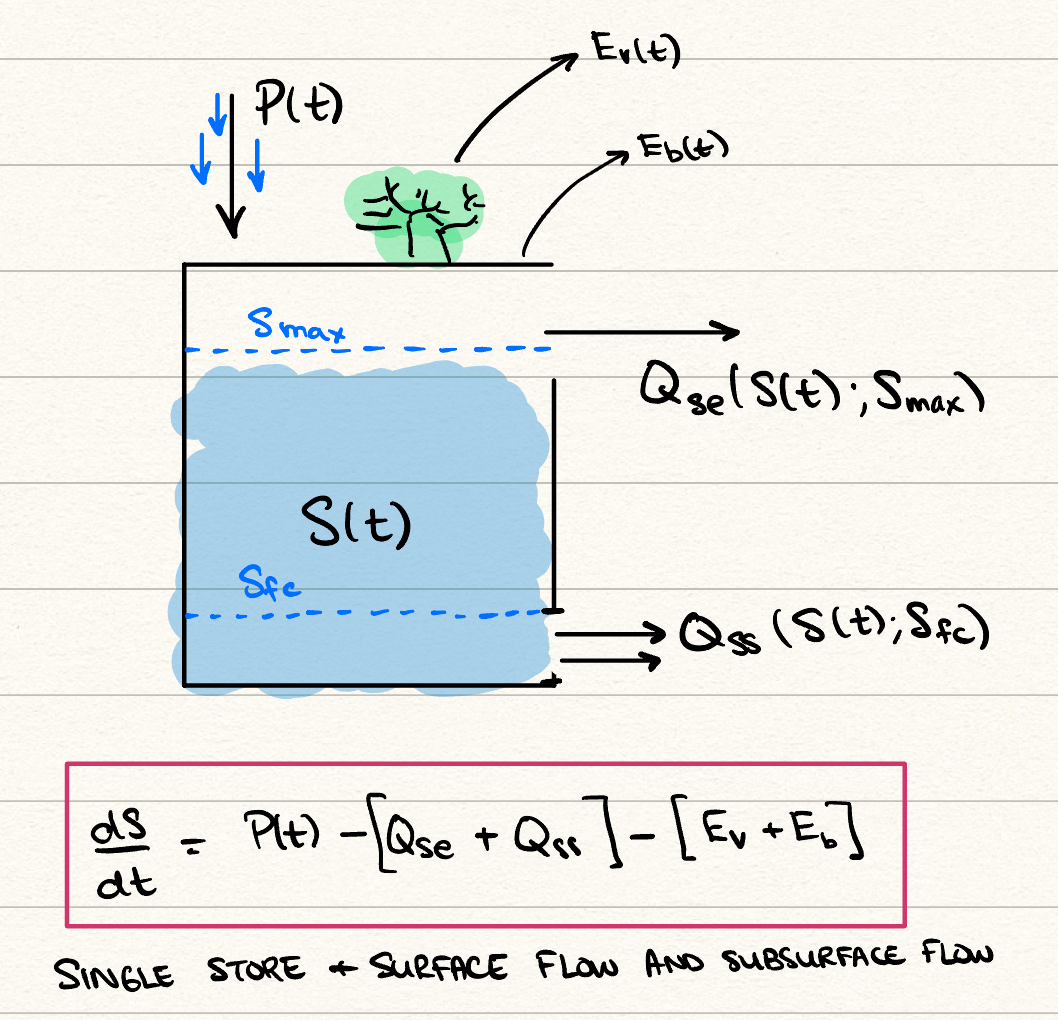 E_v(t)
P(t)
E_b(t)
S_max
Q_se(S(t);S_max)
S(t)
S_fc
Q_ss(S(t);S_fc)
dS/dt = P(t) - [Q_se + Q_ss] - [E_v + E_b]
SINGLE STORE + SURFACE FLOW AND SUBSURFACE FLOW